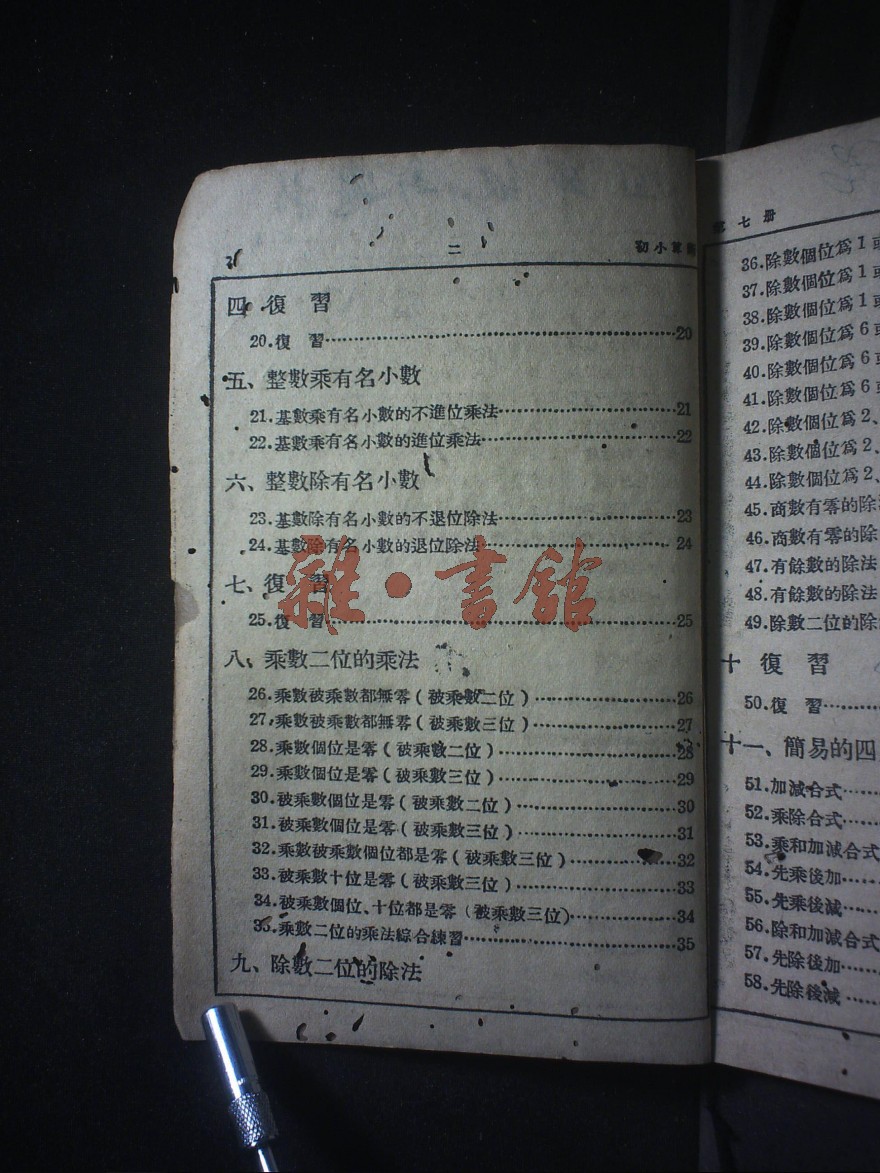 二 初小算
四 復習
20.復習 20
五、整數乘有名小數
21.基數乘有名小數的不進位乘法 21
22.基數乘有名小數的進位乘法 22
六、整數除有名小數
23.基數除有名小數的不退位除法 23
24.基數除有名小數的退位除法 24
七、復習
25.復習 25
八、乘數二位的乘法
26.乘數被乘數都無零(被乘數二位) 26
27.乘數被乘數都無零(被乘數三位) 27
28.乘數個位是零(被乘數二位) 28
29.乘數個位是零(被乘數三位) 29
30.被乘數個位是零(被乘數二位) 30
31.被乘數個位是零(被乘數三位) 31
32.乘數被乘數個位都是零(被乘數三位) 32
33.被乘數十位是零(被乘數三位) 33
34.被乘數個位、十位都是零(被乘數三位) 34
35.乘數二位的乘法綜合練習 35
九、除數二位的除法
雜·書館
第七册
36.除數個位爲1或
37.除數個位爲1或
38.除數個位爲1或
39.除數個位爲6或
40.除數個位爲6或
41.除數個位爲6或
42.除數個位爲2、
43.除數個位爲2、
44.除數個位爲2、
45.商數有零的除
46.商數有零的除
47.有餘數的除法
48.有餘數的除法
49.除數二位的除
十 復習
50.復習
十一、簡易的四
51.加減合式
52.乘除合式
53.乘和加減合式
54.先乘後加
55.先乘後減
56.除和加減合式
57.先除後加
58.先除後減